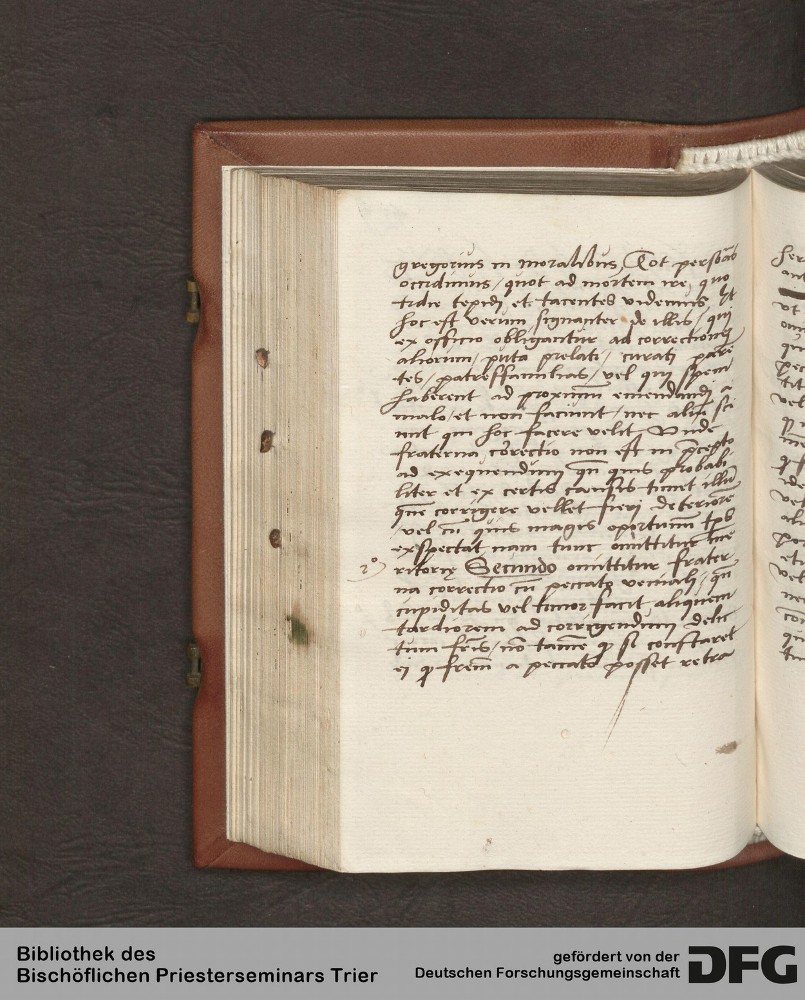 gregorius in moralibus, Tot personas
occidimus / quot ad mortem ire, quo
tidie tepidi et tacentes videmus Et
hoc est verum signanter de illis / qui
ex officio obligantur ad correctionem
aliorum / puta prelati / curati paren
tes / patresfamilias / vel qui spem
haberent ad proximum emendandi a
malo / et non faciunt / nec alium sci
unt qui hoc facere velit Unde
fraterna correctio non est in precepto
ad exequendum qn quis probabi
liter et ex certis causis timet illum
quem corrigere vellet fieri deteriorem
/ vel cum quis magis oportunum tps
exspectat nam tunc omittitur me
2º ritorie Secundo omittitur frater
na correctio cum peccato veniali / qn
cupiditas vel timor facit aliquem
tardiorem ad corrigendum delic
tum fris / non tamen q si constaret
ei q frem a peccato posset retra
Bibliothek des
Bischöflichen Priesterseminars Trier
gefördert von der
Deutschen Forschungsgemeinschaft
DFG